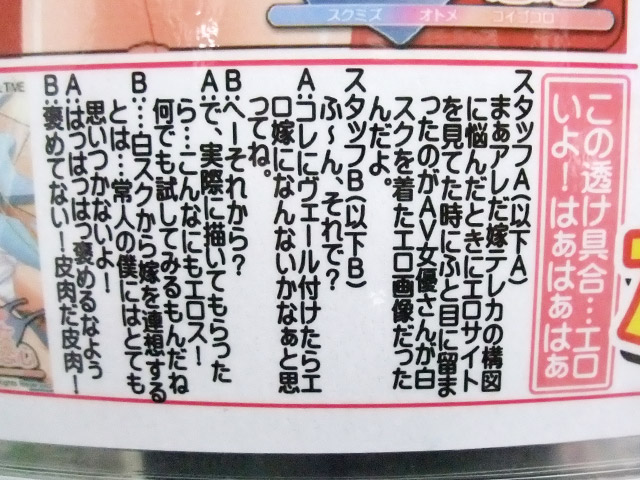 スクミズ オトメ コイゴコロ
この透け具合…エロ
いよ!はぁはぁはぁ
スタッフA(以下A)
まぁアレだ嫁テレカの構図
に悩んだときにエロサイト
を見てた時にふと目に留ま
ったのがAV女優さんが白
スクを着たエロ画像だった
んだよ。
スタッフB(以下B)
ふ〜ん、それで?
A:コレにヴェール付けたらエ
ロ嫁になんないかなぁと思
ってね。
B:へーそれから?
A:で、実際に描いてもらった
ら…こんなにもエロス!
何でも試してみるもんだね
B:…白スクから嫁を連想する
とは…常人の僕にはとても
思いつかないよ!
A:はっはっはっ褒めるなよぅ
B:褒めてない!皮肉だ皮肉!